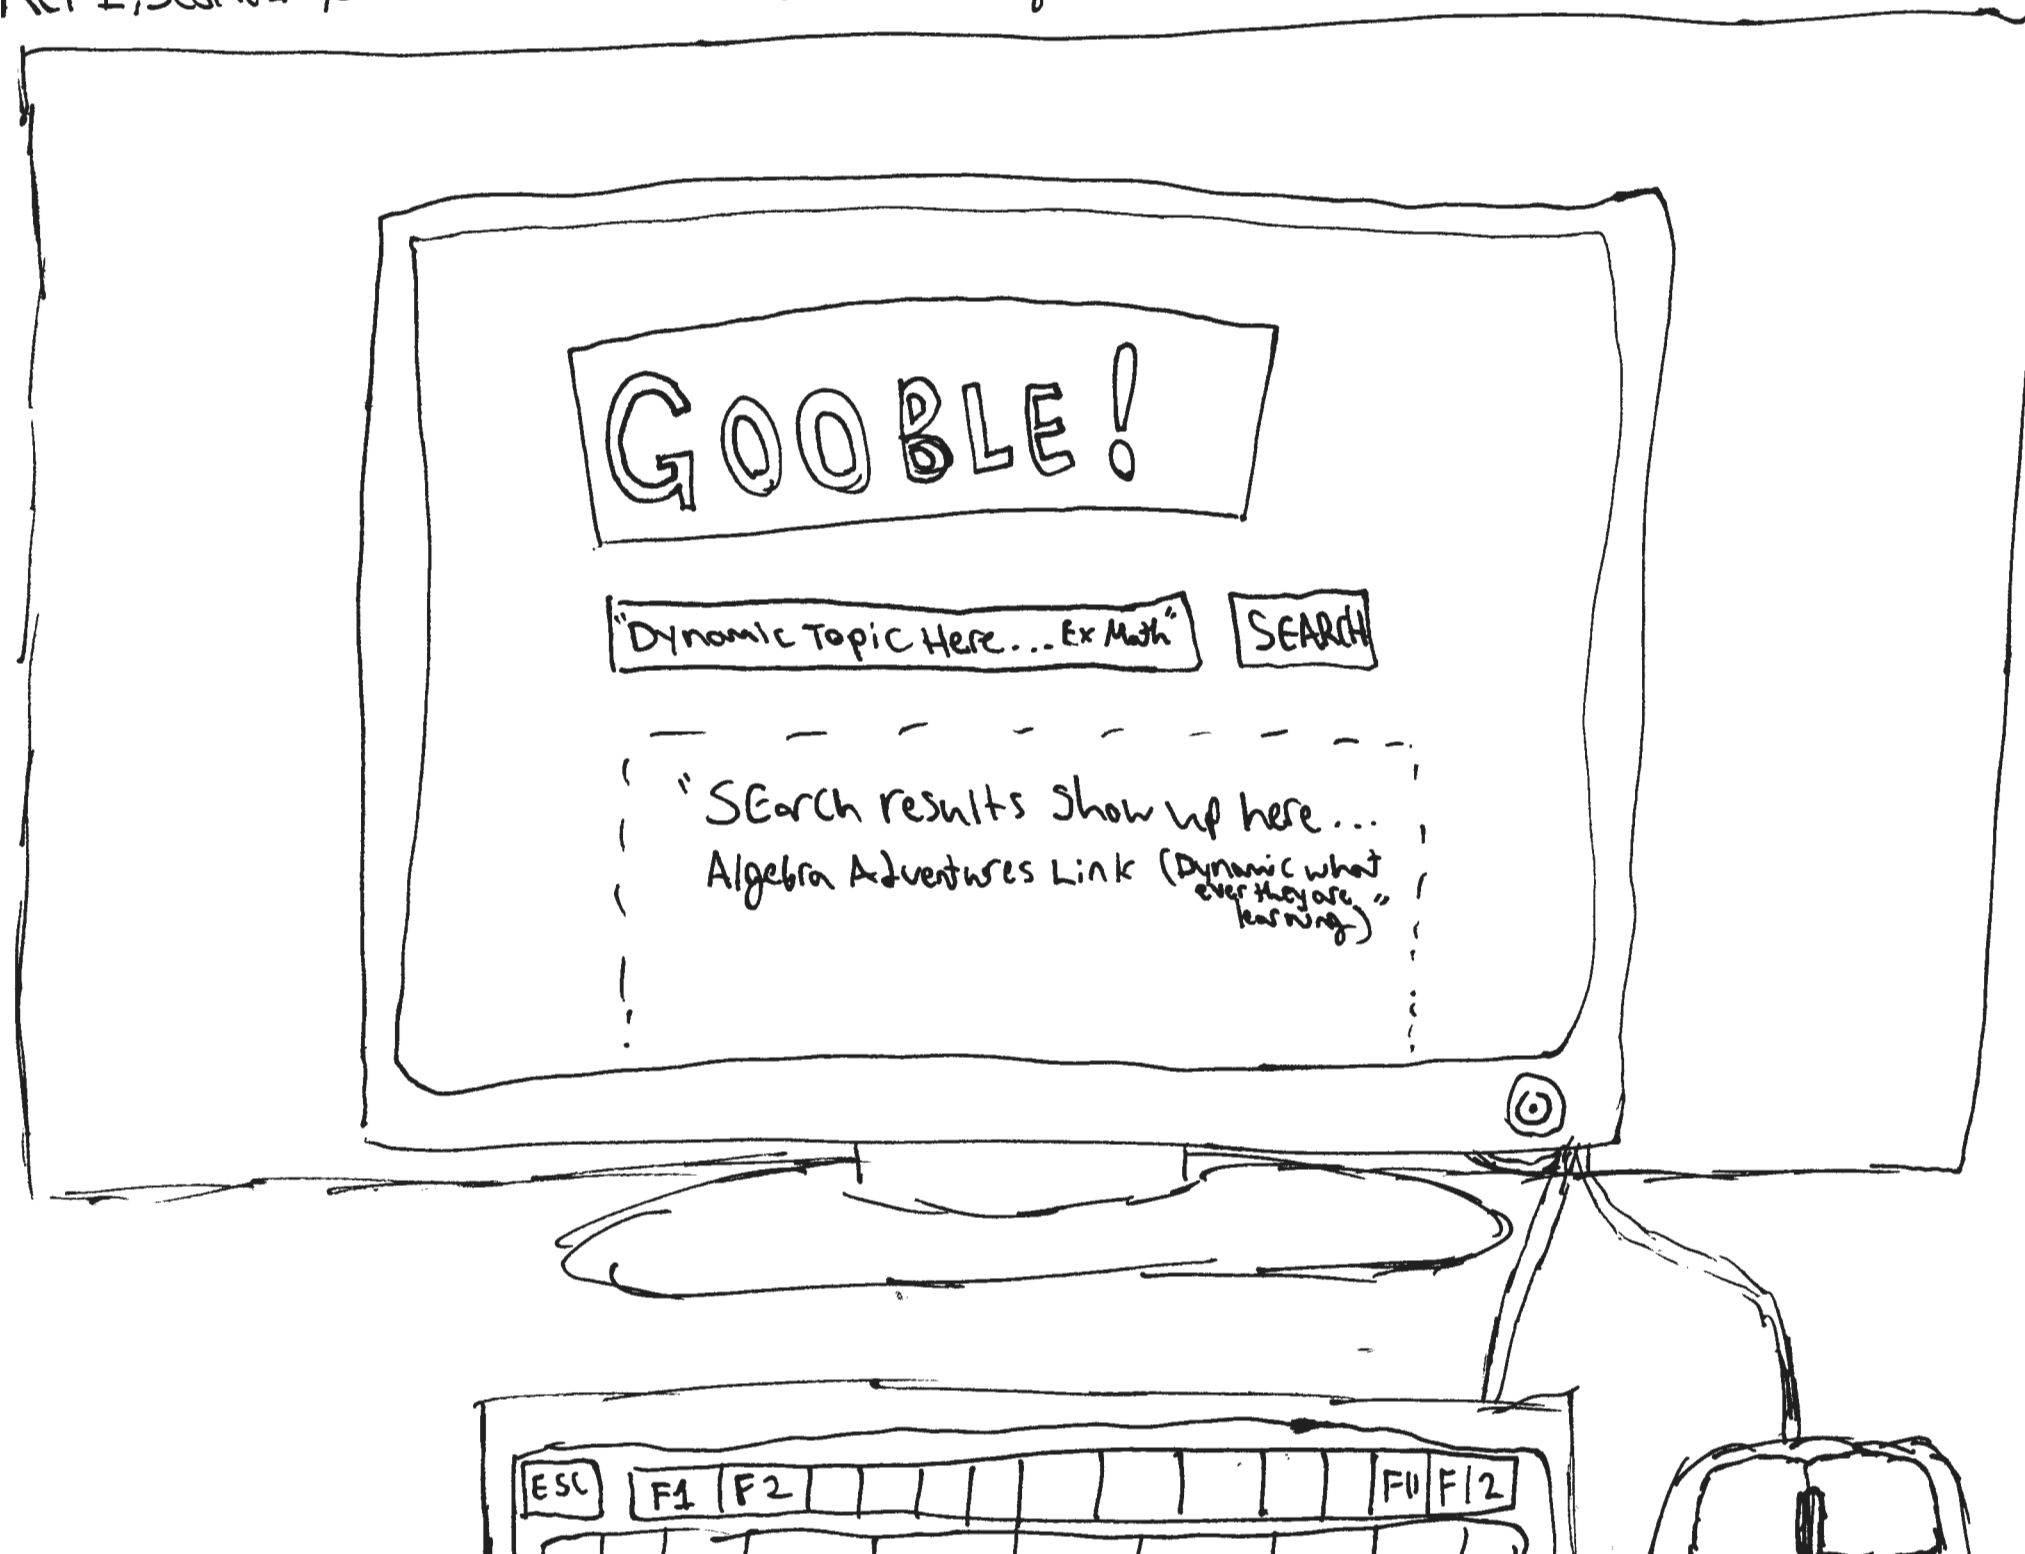 GOOBLE!
"Dynamic Topic Here... Ex Math"
SEARCH
"SEarch results show up here...
Algebra Adventures Link (Dynamic what
ever they are
learning)"
ESC F1 F2 F11 F12